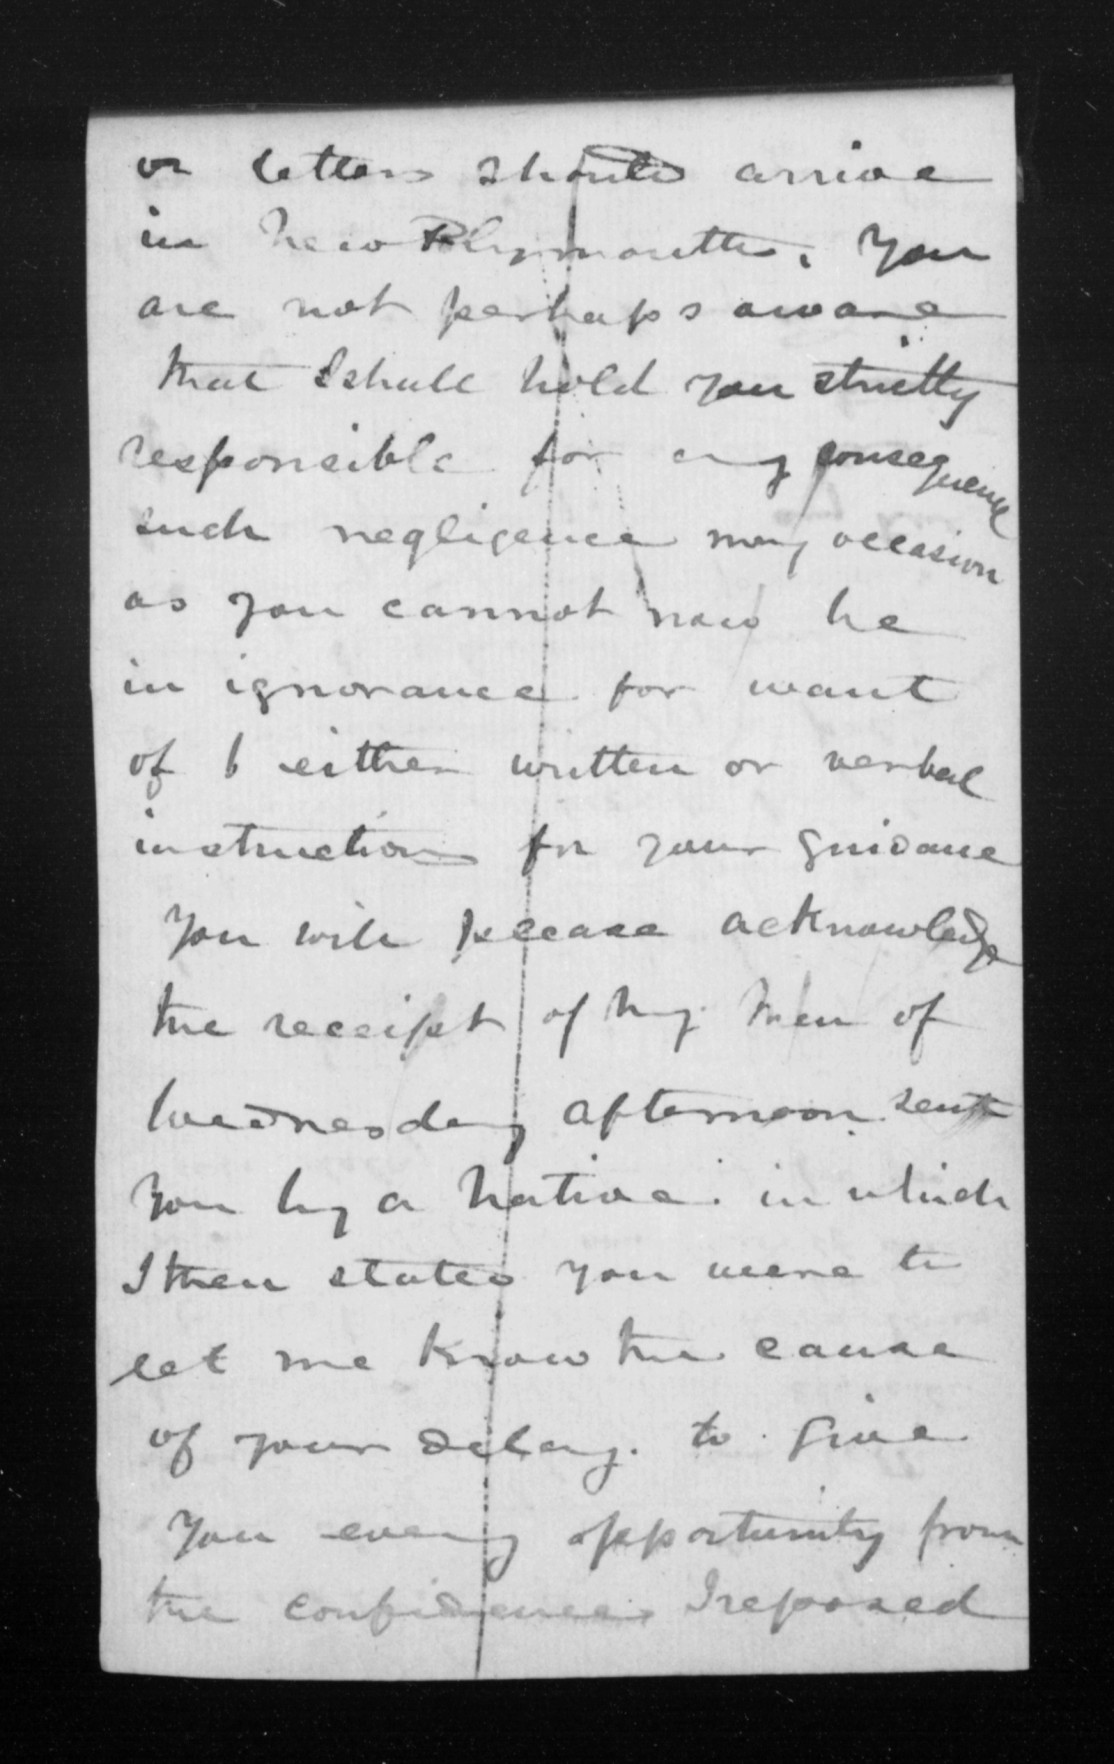 or letters should arrive
in New Plymouth. You
are not perhaps aware
that I shall hold you strictly
responsible for any consequence
such negligence may occasion
as you cannot now be
in ignorance for want
of either written or verbal
instructions for your guidance
You will please acknowledge
the receipt of my Mem of
Wednesday afternoon sent
You by a Native. in which
I then stated you were to
let me know the cause
of your delay. to give
You every opportunity from
the confidence I reposed